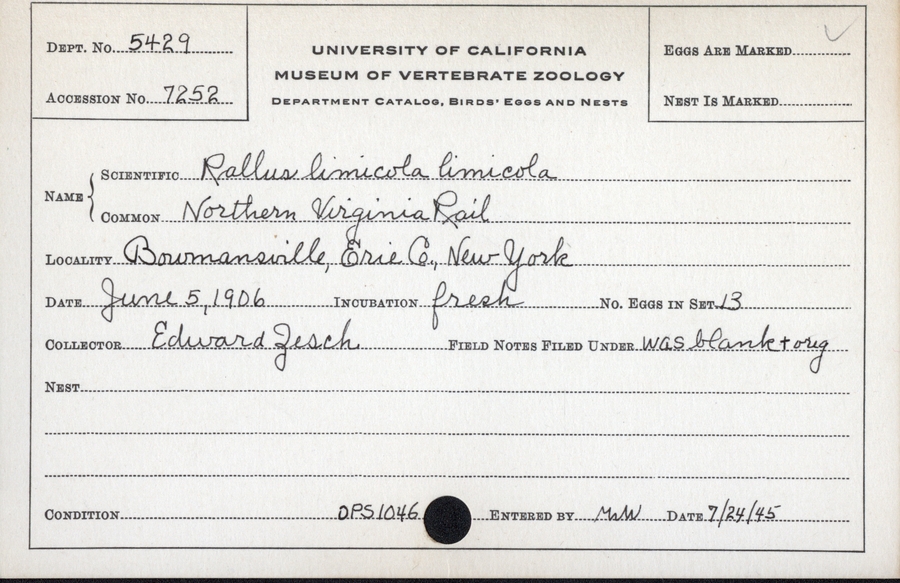 Dept. No. 5429
Accession No. 7252
UNIVERSITY OF CALIFORNIA
MUSEUM OF VERTEBRATE ZOOLOGY
Department Catalog, Birds' Eggs and Nests
Eggs Are Marked
Nest Is Marked
Name { Scientific Rallus limicola limicola
Common Northern Virginia Rail
Locality Bowmansville, Erie Co., New York
Date June 5, 1906 Incubation fresh No. Eggs in Set 13
Collector Edward Jesch Field Notes Filed Under was blank + orig
Nest
Condition OPS 1046 Entered by MW Date 7/24/45